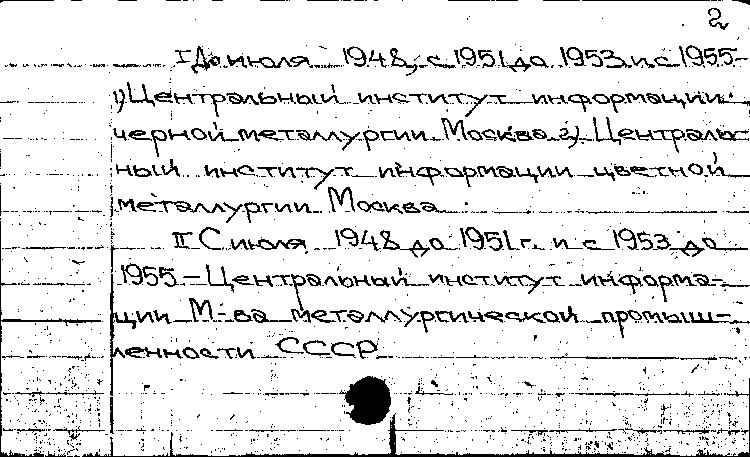 2
I До июля 1948, с 1951 до 1953 и с 1955-
1) Центральный институт информации
черной металлургии. Москва. 2) Централь-
ный институт информации цветной
металлургии Москва.
II С июля 1948 до 1951 г. и с 1953 до
1955 - Центральный институт информа-
ции М-ва металлургической промыш-
ленности СССР